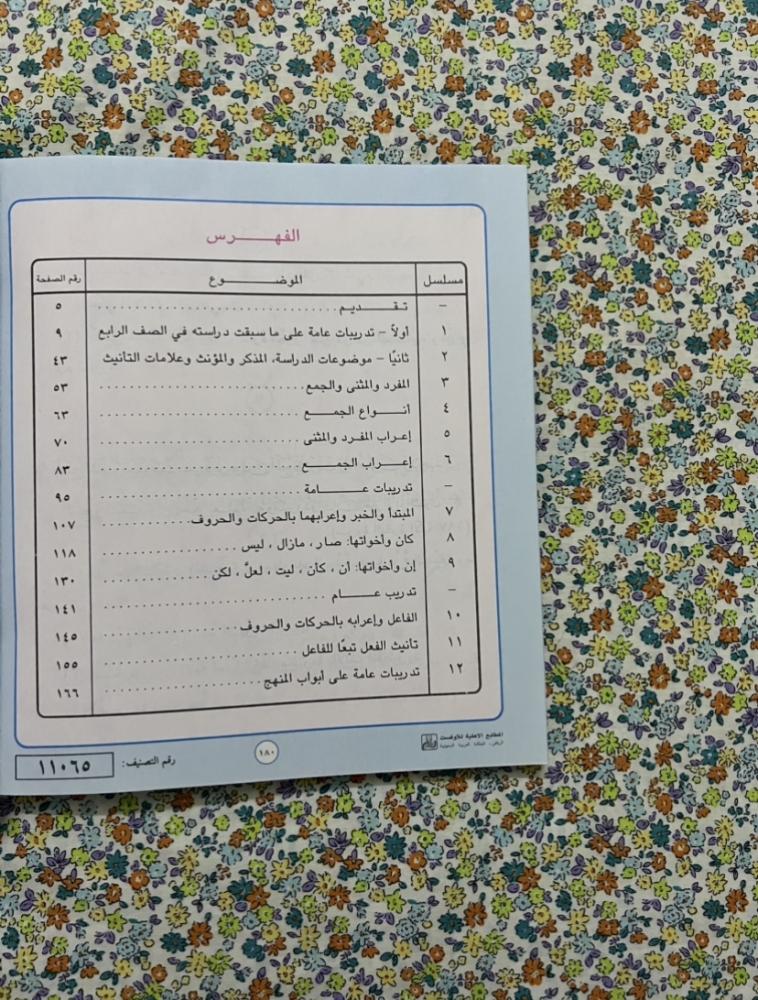 الفهرس
مسلسل الموضوع رقم الصفحة
– تقديم ................................ ٥
١ أولاً – تدريبات عامة على ما سبقت دراسته في الصف الرابع ٩
٢ ثانيًا – موضوعات الدراسة، المذكر والمؤنث وعلامات التأنيث ٤٣
٣ المفرد والمثنى والجمع .......................... ٥٣
٤ أنواع الجمع .......................... ٦٣
٥ إعراب المفرد والمثنى .......................... ٧٠
٦ إعراب الجمع .......................... ٨٣
– تدريبات عامة .......................... ٩٥
٧ المبتدأ والخبر وإعرابهما بالحركات والحروف ............. ١٠٧
٨ كان وأخواتها: صار، مازال، ليس ................. ١١٨
٩ إن وأخواتها: أن، كأن، ليت، لعلَّ، لكن ............. ١٣٠
– تدريب عام ............................ ١٤١
١٠ الفاعل وإعرابه بالحركات والحروف ................. ١٤٥
١١ تأنيث الفعل تبعًا للفاعل ........................ ١٥٥
١٢ تدريبات عامة على أبواب المنهج .................... ١٦٦
المطابع الأهلية للأوفست
الرياض، المملكة العربية السعودية
١٨٠
رقم التصنيف: ١١٠٦٥